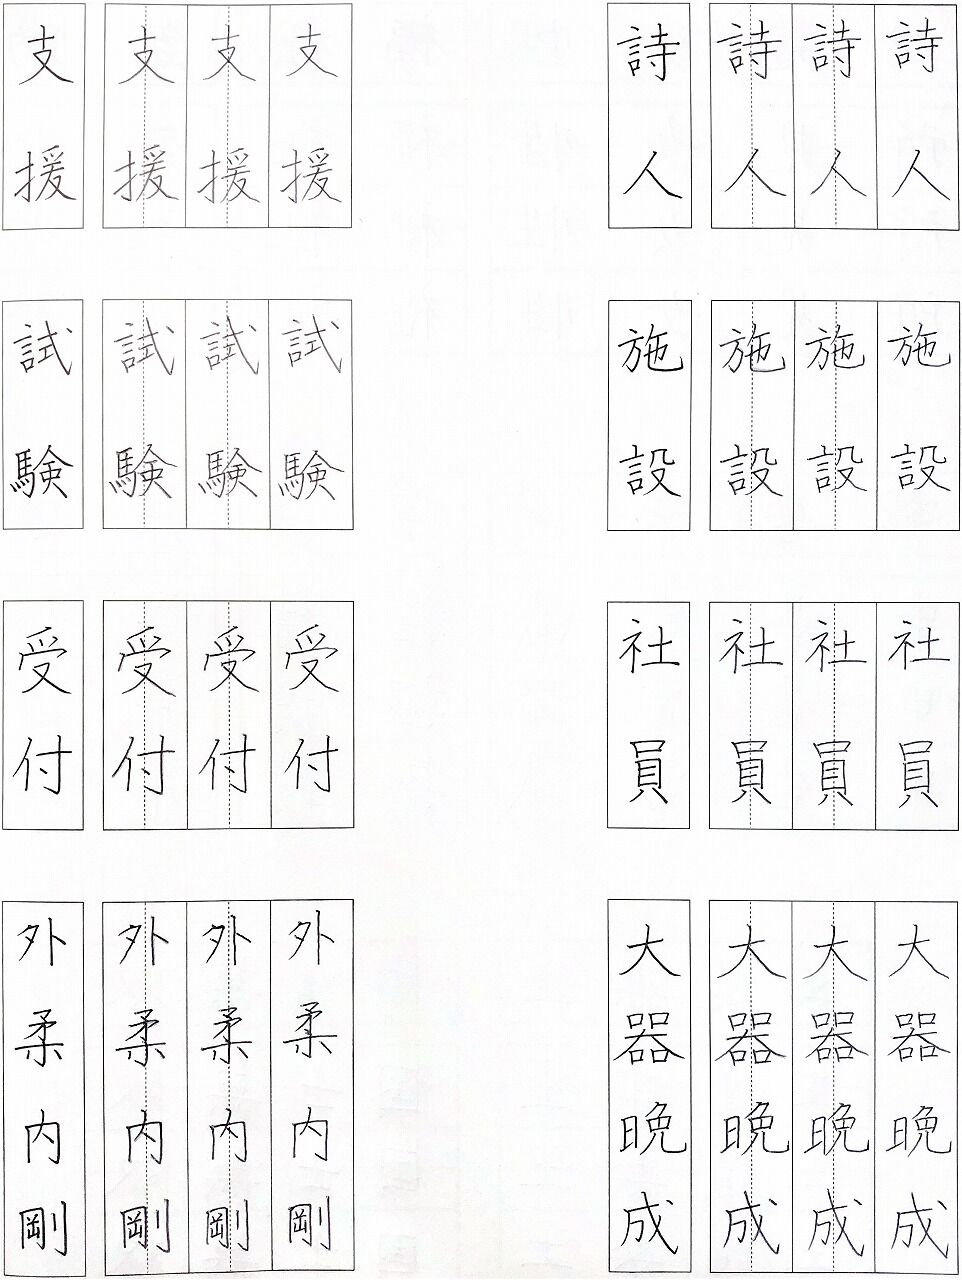 詩人
詩人
詩人
詩人
支援
支援
支援
支援
施設
施設
施設
施設
試験
試験
試験
試験
社員
社員
社員
社員
受付
受付
受付
受付
大器晩成
大器晩成
大器晩成
大器晩成
外柔内剛
外柔内剛
外柔内剛
外柔内剛